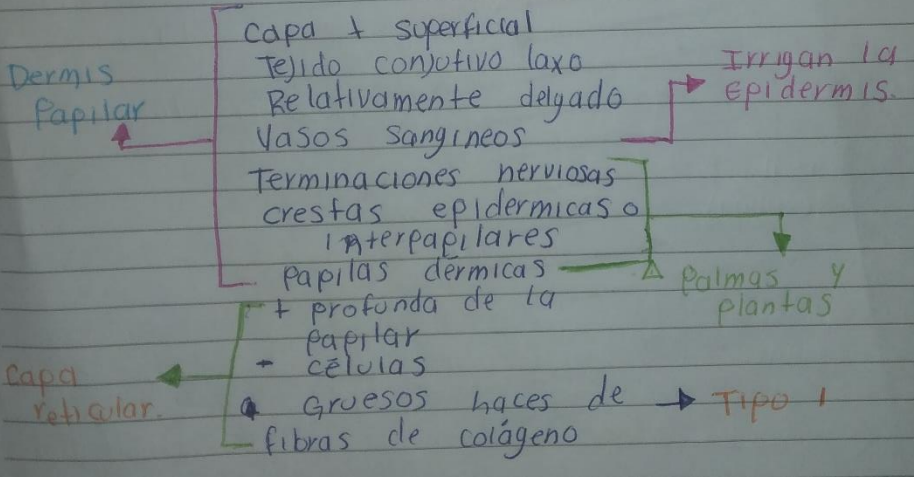 Dermis
Papilar
capa + superficial
Tejido conjutivo laxo
Relativamente delgado
Vasos sangineos
Irrigan la
epidermis.
Terminaciones nerviosas
crestas epidermicas o
interpapilares
papilas dérmicas
palmas y
plantas
capa
reticular.
+ profunda de la
papilar
- células
Gruesos haces de
fibras de colágeno
Tipo I